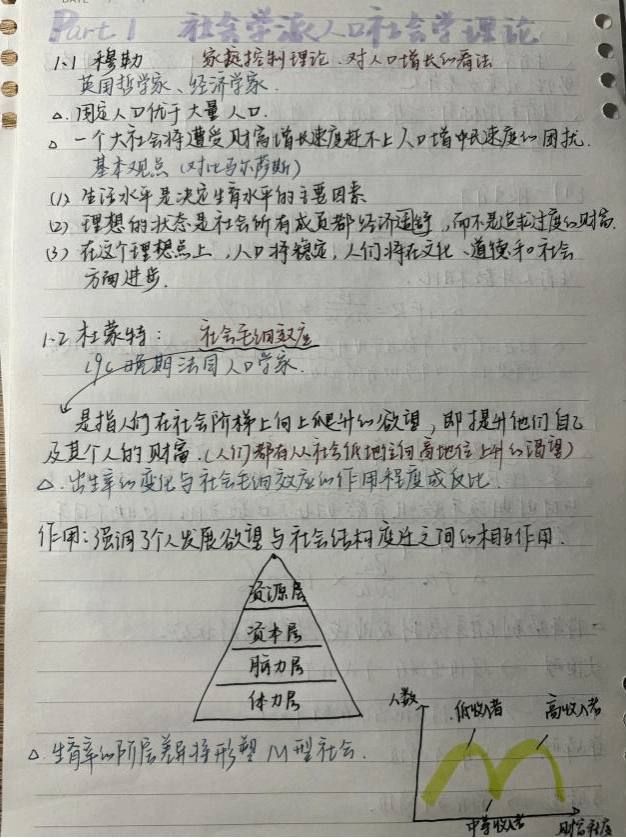 Part 1 社会学派人口社会学理论
1.1 穆勒 家庭控制理论.对人口增长的看法
英国哲学家、经济学家.
△.固定人口优于大量人口.
△ 一个大社会将遭受财富增长速度赶不上人口增长速度的困扰.
基本观点(对比马尔萨斯)
(1) 生活水平是决定生育水平的主要因素
(2) 理想的状态是社会所有成员都经济适舒,而不是追求过度的财富.
(3) 在这个理想点上,人口将稳定,人们将在文化、道德和社会
方面进步.
1.2 杜蒙特: 社会毛细效应
19c 晚期法国人口学家.
是指人们在社会阶梯上向上爬升的欲望,即提升他们自己
及其个人的财富.(人们都有从社会低地位向高地位上升的渴望)
△.出生率的变化与社会毛细效应的作用程度成反比.
作用:强调了个人发展欲望与社会结构变迁之间的相互作用.
资源层
资本层
脑力层
体力层
人数 低收入者 高收入者
△.生育率的阶层差异将形塑 M型社会.
中等收入者 财富程度